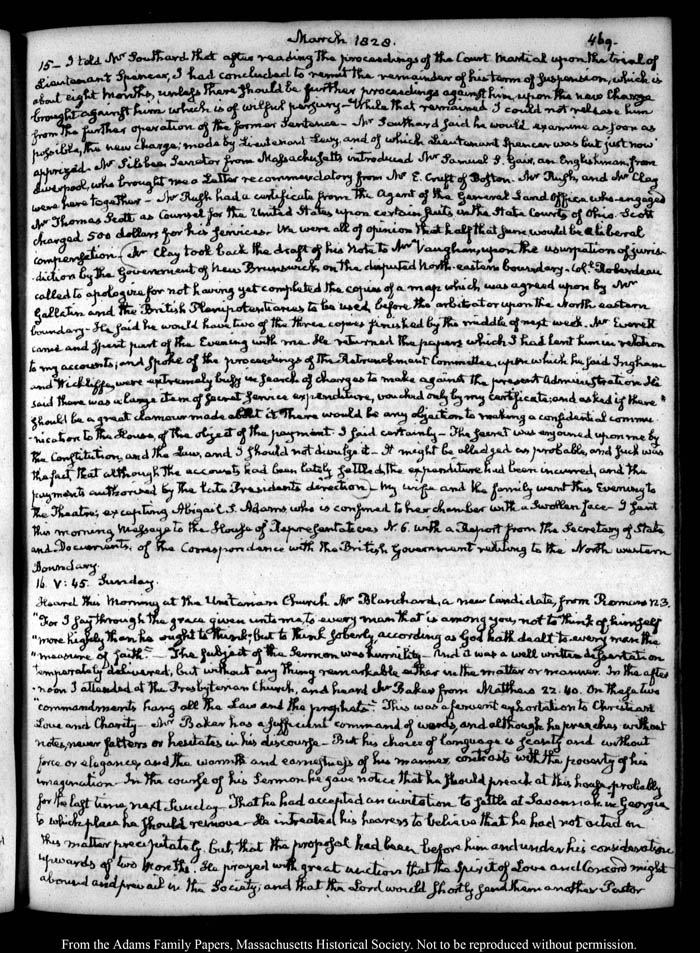 March 1828.
469.
15 – I told Mr Southard that after reading the proceedings of the Court Martial upon the trial of
Lieutenant Spencer, I had concluded to remit the remainder of his term of suspension, which is
about eight months, unless there should be further proceedings against him, upon the new Charge
brought against him which is of wilful perjury – While that remained I could not release him
from the further operation of the former Sentence – Mr Southard said he would examine as soon as
possible, the new charge; made by Lieutenant Levy, and of which Lieutenant Spencer was but just now
apprized – Mr Silsbee Senator from Massachusetts introduced Mr Samuel S. Gair, an Englishman, from
Liverpool, who brought me a Letter recommendatory from Mr E. Cruft of Boston. Mr Rush, and Mr Clay
were here together – Mr Rush had a certificate from the Agent of the General Land Office who engaged
Mr Thomas Scott as Counsel for the United States upon certain suits in the State Courts of Ohio. Scott
charged 500 dollars for his services. We were all of opinion that half that sum would be a liberal
compensation. Mr Clay took back the draft of his Note to Mr Vaughan, upon the usurpation of juris-
-diction by the Government of New Brunswick, on the disputed North-eastern boundary. Colt Roberdeau
called to apologize for not having yet completed the copies of a map which was agreed upon by Mr
Gallatin and the British Plenipotentiaries to be used before the arbitrator upon the North eastern
boundary – He said he would have two of the three copies finished by the middle of next week. Mr Everett
came and spent part of the Evening with me. He returned the papers which I had lent him in relation
to my accounts; and spoke of the proceedings of the Retrenchment Committee, upon which he said Ingham
and Wickliffe, were extremely busy in search of charges to make against the present Administration. He
said there was a large item of Secret Service expenditure, vouched only by my certificate; and asked if there
should be a great clamour made about it there would be any objection to making a confidential commu-
-nication to the House, of the object of the payment. I said certainly – The secret was enjoined upon me by
the Constitution, and the Law, and I should not divulge it – It might be alledged as probable, and such was
the fact that although the accounts had been lately settled, the expenditure had been incurred, and the
payments authorised by the late Presidents direction – My wife and the family went this Evening to
the Theatre; excepting Abigail S. Adams, who is confined to her chamber with a swollen face – I sent
this morning Message to the House of Representatives N. 6. with a Report from the Secretary of State
and Documents, of the Correspondence with the British Government relating to the North western
Boundary.
16. V: 45. Sunday.
Heard this Morning at the Unitarian Church Mr Blanchard, a new Candidate, from Romans 12.3.
"For I say through the grace given unto me, to every man that is among you, not to think of himself
"more highly than he ought to think; but to think soberly, according as God hath dealt to every man the
"measure of faith." – The subject of the Sermon was humility – And it was a well written dissertation
temperately delivered, but without any thing remarkable either in the matter or manner. In the after
noon I attended at the Presbyterian Church, and heard Mr Baker from Matthew 22.40. On these two
"commandments hang all the Law and the prophets." This was a fervent exhortation to Christian
Love and Charity – Mr Baker has a sufficient command of words, and although he preaches without
notes, never falters or hesitates in his discourse – But his choice of language is scanty and without
force or elegance, and the warmth and earnestness of his manner contrasts with the poverty of his
imagination – In the course of his Sermon he gave notice that he should preach at this house probably
for the last time next Sunday – That he had accepted an invitation to settle at Savannah in Georgia
to which place he should remove – He intreated his hearers to believe that he had not acted on
this matter precipitately, but, that the proposal had been before him and under his consideration
upwards of two months. He prayed with great unction that the Spirit of Love and Concord might
abound and prevail in the Society; and that the Lord would shortly send them another Pastor
From the Adams Family Papers, Massachusetts Historical Society. Not to be reproduced without permission.